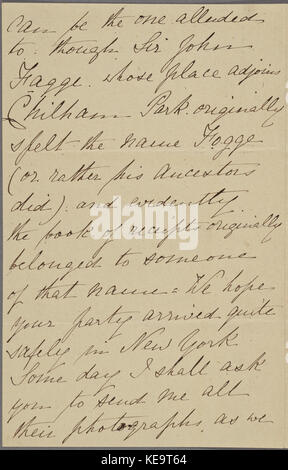 can be the one alluded
to. though Sir John
Fagge. whose place adjoins
Chilham Park. originally
spelt the name Fogge
(or rather his Ancestors
did). and evidently
the book of receipts originally
belonged to someone
of that name = We hope
your party arrived quite
safely in New York.
Some day I shall ask
you to send me all
their photographs, as we
alamy
KE9T64